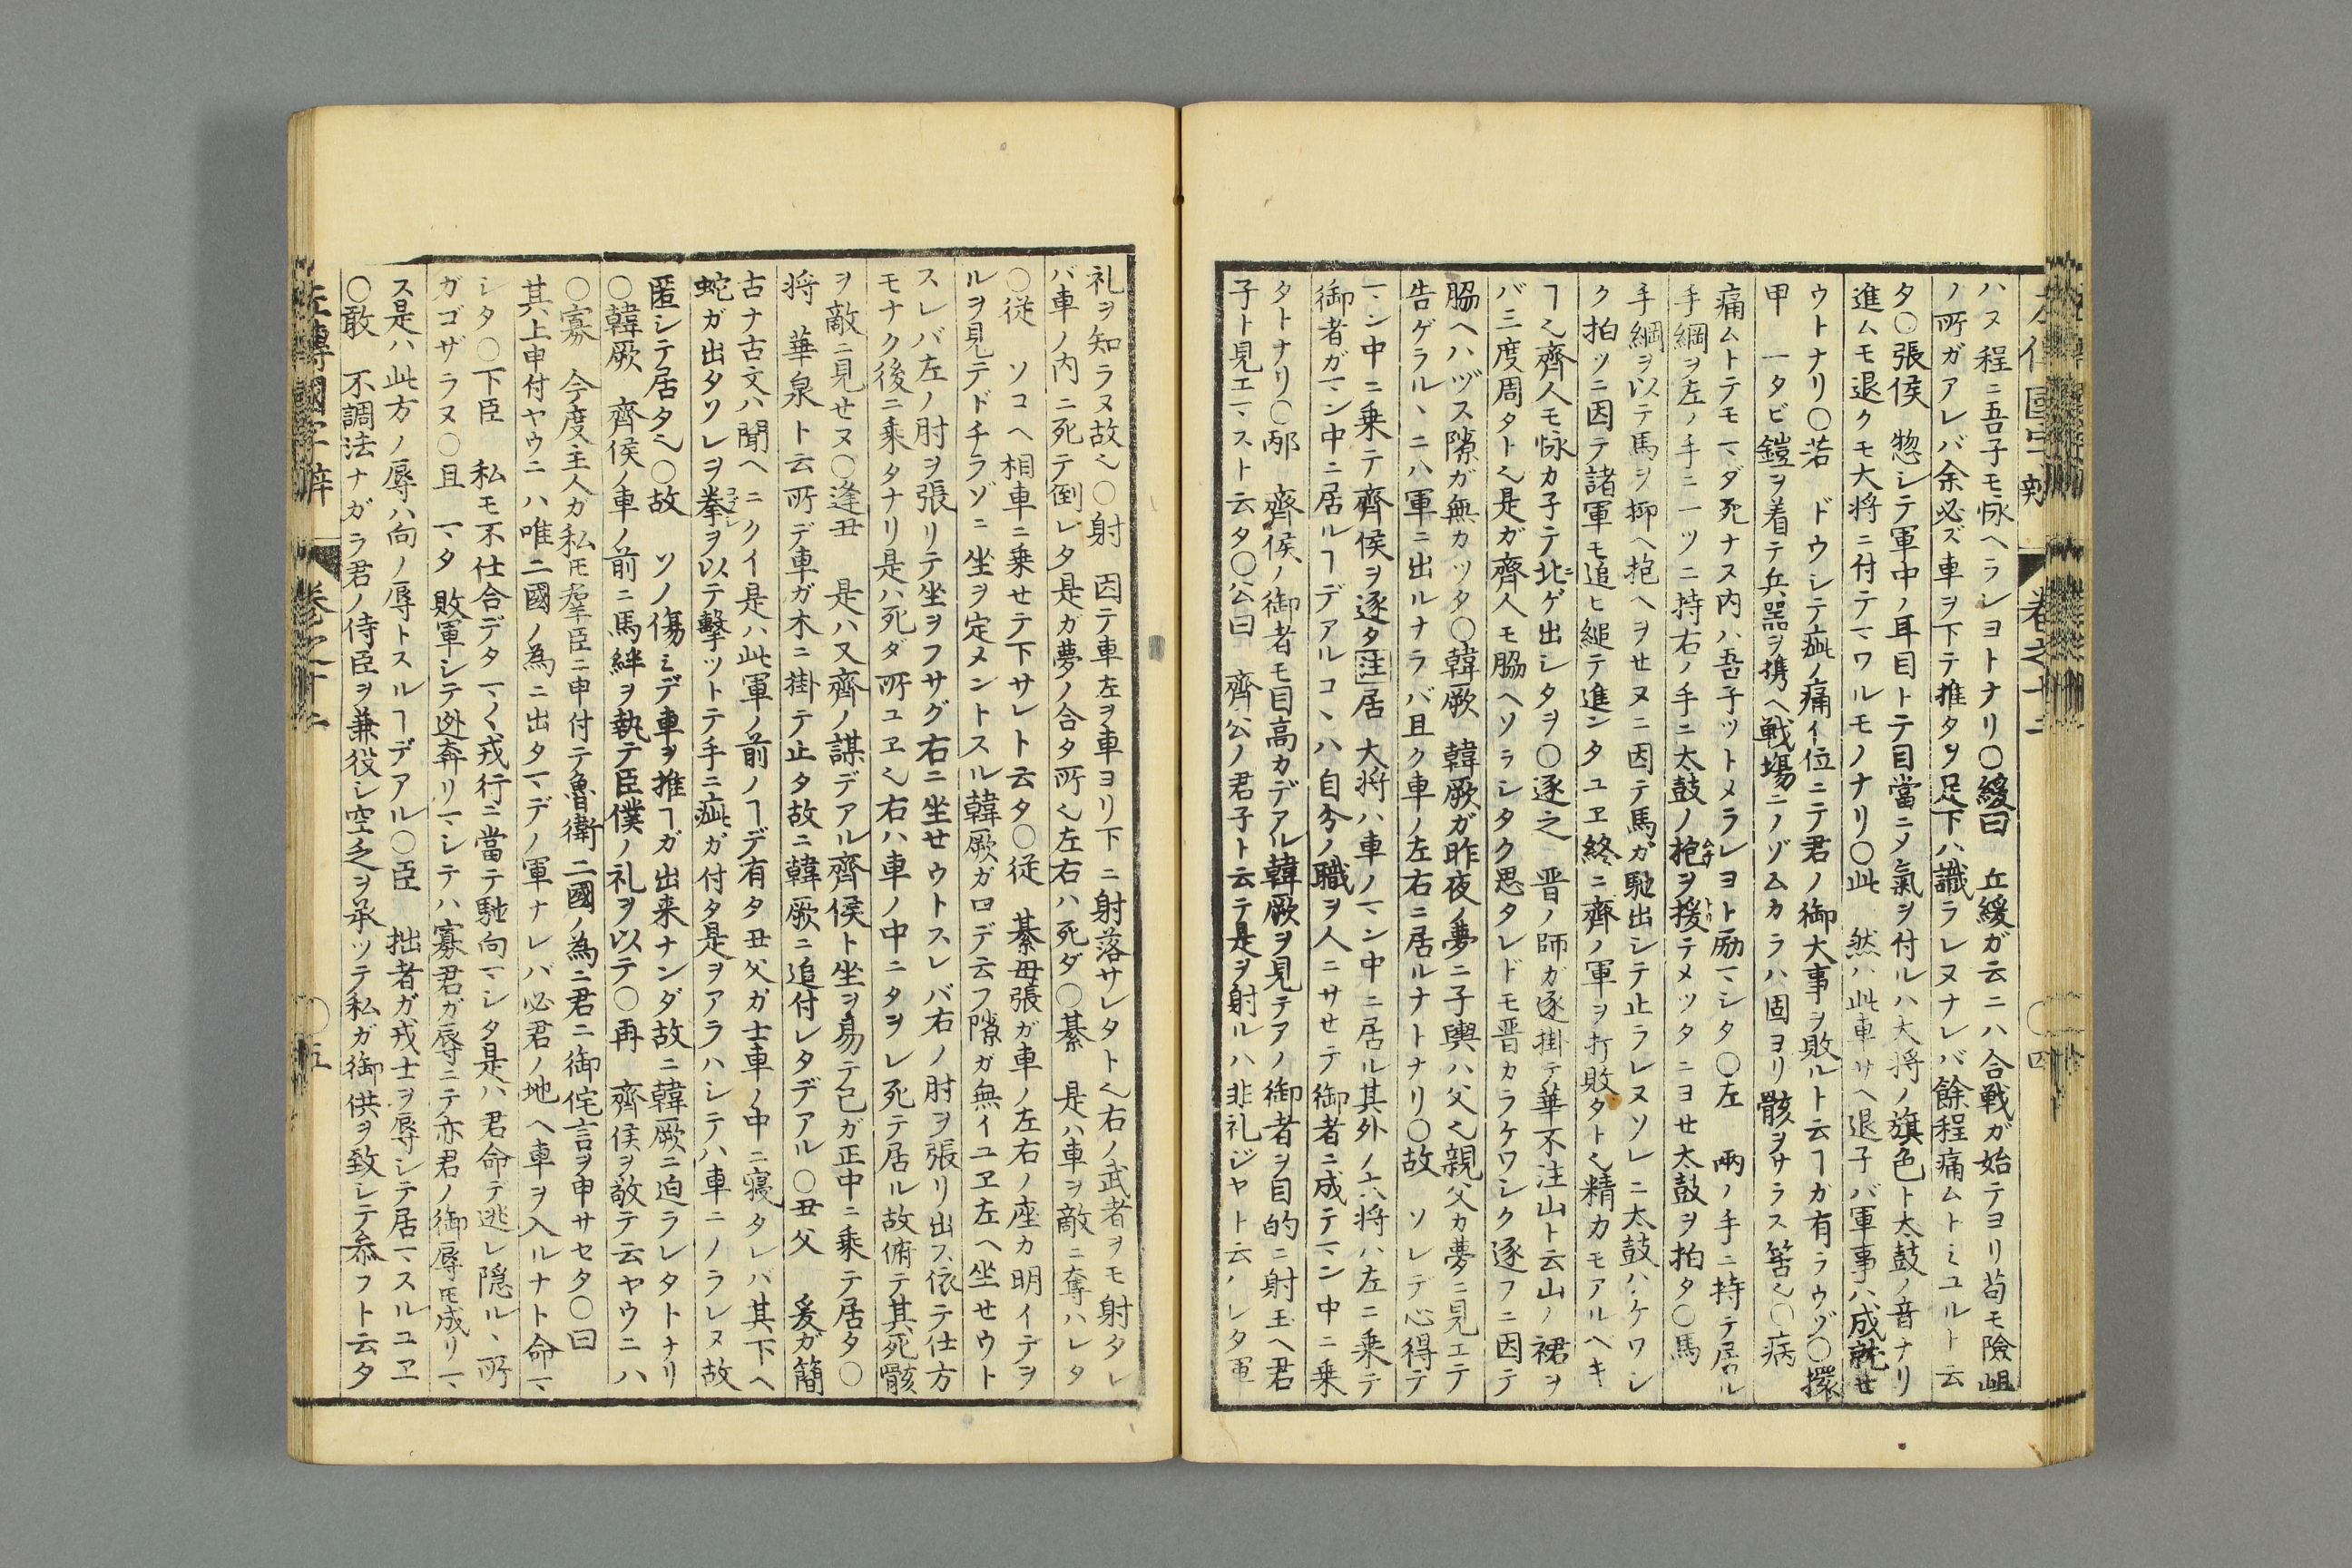 ハヌ程ニ吾子モ怺ヘラレヨトナリ〇緩曰　丘緩ガ云ニハ合戦ガ始テヨリ苟モ險岨
ノ所ガアレバ余必ズ車ヲ下テ推タヲ足下ハ識ラレヌナレバ餘程痛ムトミユルト云
タ〇張侯　惣シテ軍中ノ耳目トテ目當ニメ氣ヲ付ルハ大将ノ旗色ト太鼓ノ音ナリ
進ムモ退クモ大将ニ付テマワルモノナリ〇此　然ハ此車サヘ退子バ軍事ハ成就せ
ウトナリ〇若　ドウシテ疵ノ痛イ位ニテ君ノ御大事ヲ敗ルト云ヿガ有ラウゾ〇擐
甲　一タビ鎧ヲ着テ兵噐ヲ携ヘ戦場ニノゾムカラハ固ヨリ骸ヲサラス筈也〇病
痛ムトテモマダ死ナヌ内ハ吾子ツトメラレヨト励マシタ〇左　兩ノ手ニ持テ居ル
手綱ヲ左ノ手ニ一ツニ持右ノ手ニ太鼓ノ枹ヲ援テメツタニヨせ太鼓ヲ拍タ〇馬
手綱ヲ以テ馬ヲ抑ヘ抱ヘヲせヌニ因テ馬ガ馳出シテ止ラレヌソレニ太鼓ハケワシ
ク拍ツニ因テ諸軍モ追ヒ縋テ進ンタユヱ終ニ齊ノ軍ヲ打敗タト也精カモアルヘキ
ヿ也齊人モ怺カ子テ北ゲ出シタヲ〇逐之　晋ノ師ガ逐掛テ華不注山ト云山ノ裙ヲ
バ三度周タト也是ガ齊人モ脇ヘソラシタク思タレドモ晋カラケワシク逐フニ因テ
脇ヘハヅス隙ガ無カツタ〇韓厥　韓厥ガ昨夜ノ夢ニ子輿ハ父也親父カ夢ニ見エテ
告ゲラルヽニハ軍ニ出ルナラバ且ク車ノ左右ニ居ルナトナリ〇故　ソレデ心得テ
マン中ニ乗テ齊侯ヲ逐タ注居　大将ハ車ノマン中ニ居ル其外ノ六将ハ左ニ乗テ
御者ガマン中ニ居ルヿデアルコヽハ自分ノ職ヲ人ニサせテ御者ニ成テマン中ニ乗
タトナリ〇邴　齊侯ノ御者モ目高カデアル韓厥ヲ見テアノ御者ヲ目的ニ射玉ヘ君
子ト見エマスト云タ〇公曰　齊公ノ君子ト云テ是ヲ射ルハ非礼ジヤト云ハレタ軍
礼ヲ知ラヌ故也〇射　因テ車左ヲ車ヨリ下ニ射落サレタト也右ノ武者ヲモ射タレ
バ車ノ内ニ死テ倒レタ是ガ夢ノ合タ所也左右ハ死ダ〇綦　是ハ車ヲ敵ニ奪ハレタ
〇従　ソコヘ相車ニ乗せテ下サレト云タ〇従　綦母張ガ車ノ左右ノ座カ明イテヲ
ルヲ見テドチラゾニ坐ヲ定メントスル韓厥ガ口デ云フ隙ガ無イユヱ左ヘ坐せウト
スレバ左ノ肘ヲ張リテ坐ヲフサグ右ニ坐せウトスレバ右ノ肘ヲ張リ出ス依テ仕方
モナク後ニ乘タナリ是ハ死ダ所ユヱ也右ハ車ノ中ニタヲレ死テ居ル故俯テ其死骸
ヲ敵ニ見せヌ〇逢丑　是ハ又齊ノ謀デアル齊侯ト坐ヲ易テ己ガ正中ニ乗テ居タ〇
将　華泉ト云所デ車ガ木ニ掛テ止タ故ニ韓厥ニ追付レタデアル〇丑父　爰ガ簡
古ナ古文ハ聞ヘニクイ是ハ此軍ノ前ノヿデ有タ丑父ガ士車ノ中ニ寝タレバ其下ヘ
蛇ガ出タソレヲ拳ヲ以テ撃ツトテ手ニ疵ガ付タ是ヲアラハシテハ車ニノラレヌ故
匿シテ居タ也〇故　ソノ傷ミデ車ヲ推ヿガ出来ナンダ故ニ韓厥ニ迫ラレタトナリ
〇韓厥　齊侯ノ車ノ前ニ馬絆ヲ執テ臣僕ノ礼ヲ以テ〇再　齊侯ヲ敬テ云ヤウニハ
〇寡　今度主人カ私モ羣臣ニ申付テ魯衛二國ノ為ニ君ニ御侘言ヲ申サセタ〇曰
其上申付ヤウニハ唯二國ノ為ニ出タマデノ軍ナレバ必君ノ地ヘ車ヲ入ルナト命マ
シタ〇下臣　私モ不仕合デタマ〱戎行ニ當テ馳向マシタ是ハ君命デ逃レ隠ルヽ所
ガゴザラヌ〇且　マタ敗軍シテ迯奔リマシテハ寡君ガ辱ニテ亦君ノ御辱モ成リマ
ス是ハ此方ノ辱ハ向ノ辱トスルヿデアル〇臣　拙者ガ戎士ヲ辱シテ居マスルユヱ
〇敢　不調法ナガラ君ノ侍臣ヲ兼役シ空乏ヲ承ツテ私ガ御供ヲ致シテ叅フト云タ
左傳國字辯　卷之十二　〇五